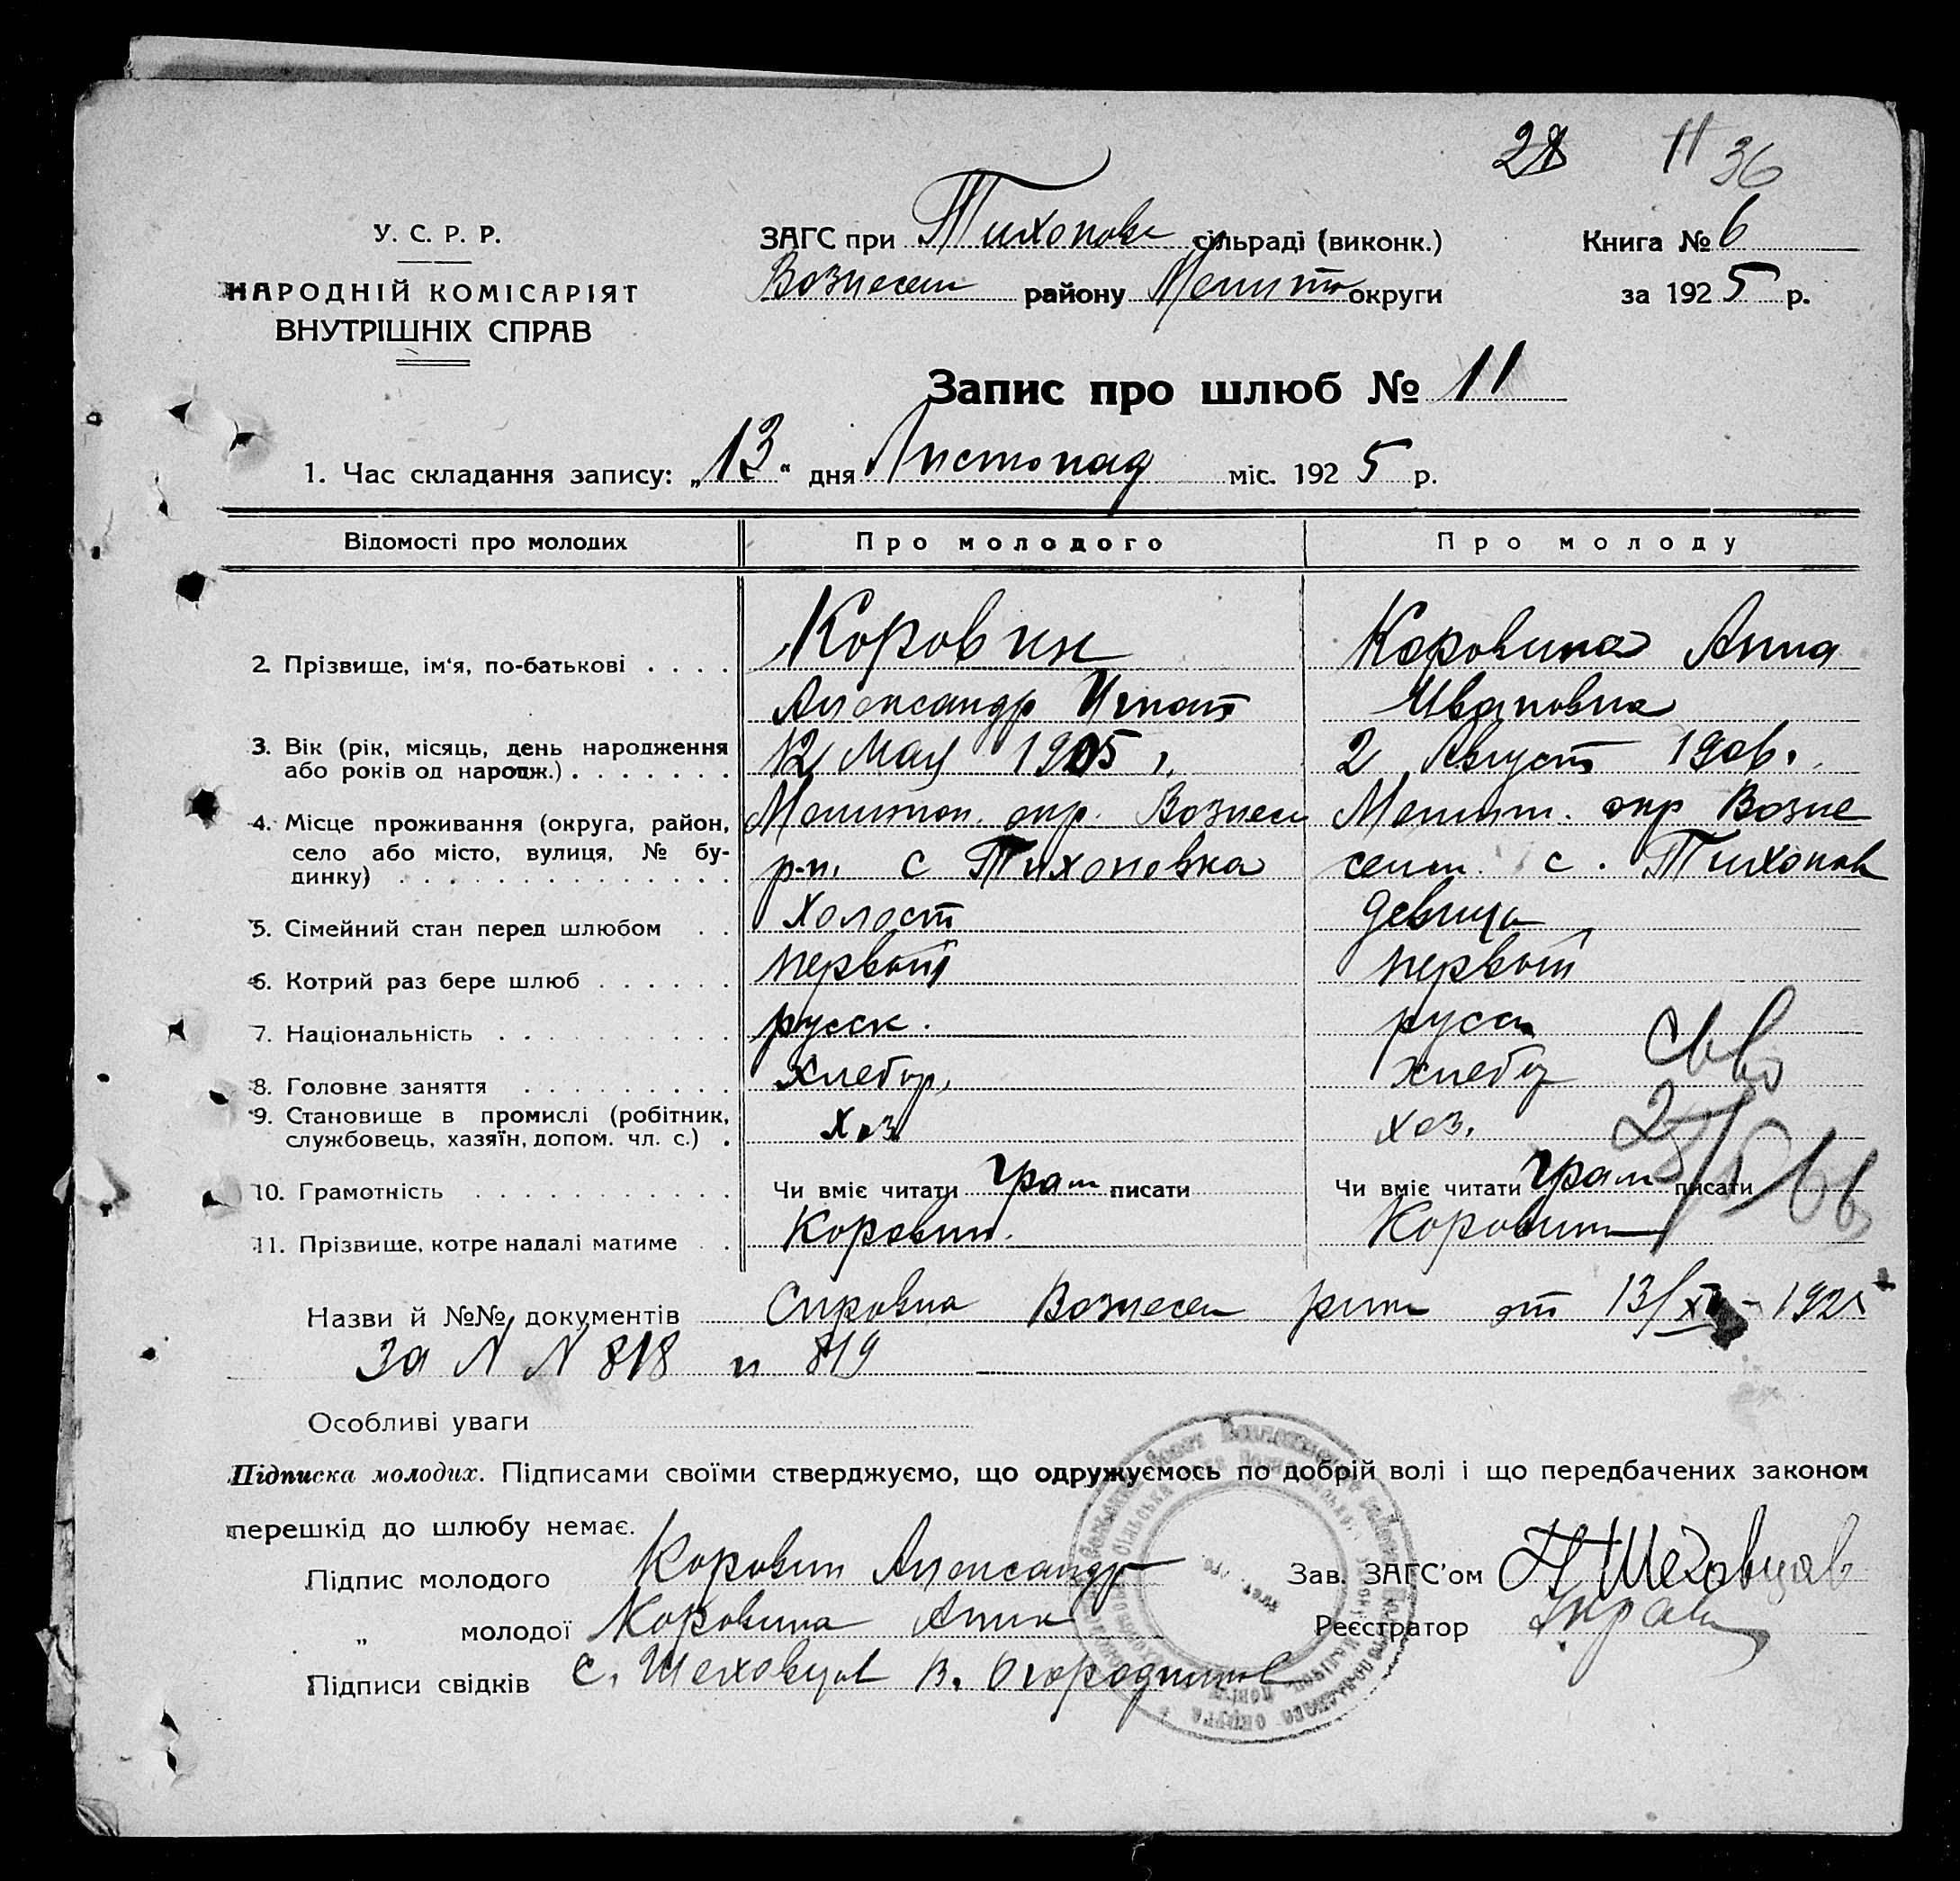 28 11 36
У. С. Р. Р.
НАРОДНІЙ КОМІСАРІЯТ
ВНУТРІШНІХ СПРАВ
ЗАГС при Тихоновс сільраді (виконк.)
Вознесен району Мелито округи
Книга № 6
за 1925 р.
Запис про шлюб № 11
1. Час складання запису: „13" дня Листопад міс. 1925 р.
Відомості про молодих Про молодого Про молоду
2. Прізвище, ім'я, по-батькові . . . . Коровин Коровина Анна
Александр Игнат Ивановна
3. Вік (рік, місяць, день народження 12 Мая 1905 г. 2 Август 1906.
або років од народж.) . . . . . . .
4. Місце проживання (округа, район, Мелитоп. окр. Вознесен Мелит. окр Возне
село або місто, вулиця, № бу- р-н. с Тихоновка сенск. с. Тихонов
динку) . . . . . . . . . . . . . .
5. Сімейний стан перед шлюбом . . Холост девица
6. Котрий раз бере шлюб . . . . . . первый первый
7. Національність . . . . . . . . . . русск. русс
8. Головне заняття . . . . . . . . . Хлебор. хлебор
9. Становище в промислі (робітник, хоз хоз.
службовець, хазяїн, допом. чл. с.) .
10. Грамотність . . . . . . . . . . . . Чи вміє читати грам писати Чи вміє читати грам писати
11. Прізвище, котре надалі матиме . . Коровин. Коровина
Назви й №№ документів Справка Вознесен рика от 13/XI - 1925
За N N 818 и 819
Особливі уваги
Підписка молодих. Підписами своїми стверджуємо, що одружуємось по добрій волі і що передбачених законом
перешкід до шлюбу немає.
Підпис молодого Коровин Александр
Зав. ЗАГС'ом Шеховцов
„ молодої Коровина Анна
Реєстратор
Підписи свідків С. Шеховцов В. Огородников